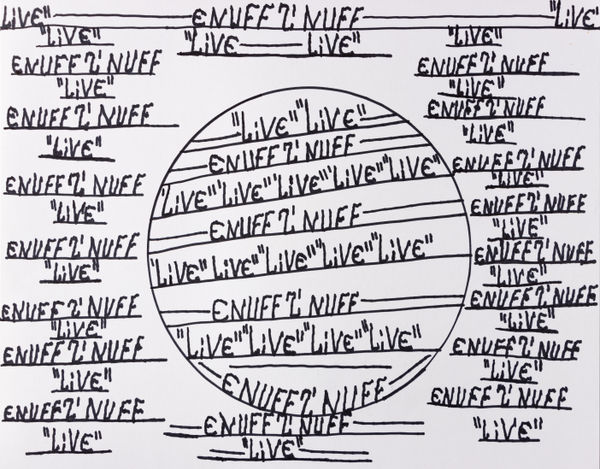 "LiVE" ENUFF Z' NUFF "LiVE'
"LiVE"
ENUFF Z' NUFF
"LiVE"
ENUFF Z' NUFF
"LiVE"
ENUFF Z' NUFF
"LiVE"
ENUFF Z' NUFF
"LiVE"
ENUFF Z' NUFF
"LiVE"
ENUFF Z' NUFF
"LiVE"
ENUFF Z' NUFF
"LiVE"
"LiVE LiVE"
"LiVE" "LiVE"
ENUFF Z' NUFF
"LiVE" "LiVE" "LiVE" "LiVE" "LiVE"
ENUFF Z' NUFF
"LiVE" "LiVE" "LiVE" "LiVE" "LiVE"
ENUFF Z' NUFF
"LiVE" "LiVE" "LiVE" "LiVE"
ENUFF Z' NUFF
ENUFF Z' NUFF
"LiVE"
"LiVE"
ENUFF Z' NUFF
"LiVE"
ENUFF Z' NUFF
"LiVE"
ENUFF Z' NUFF
"LiVE"
ENUFF Z' NUFF
"LiVE"
ENUFF Z' NUFF
"LiVE"
ENUFF Z' NUFF
"LiVE"
ENUFF Z' NUFF
"LiVE"
ENUFF Z' NUFF
"LiVE"